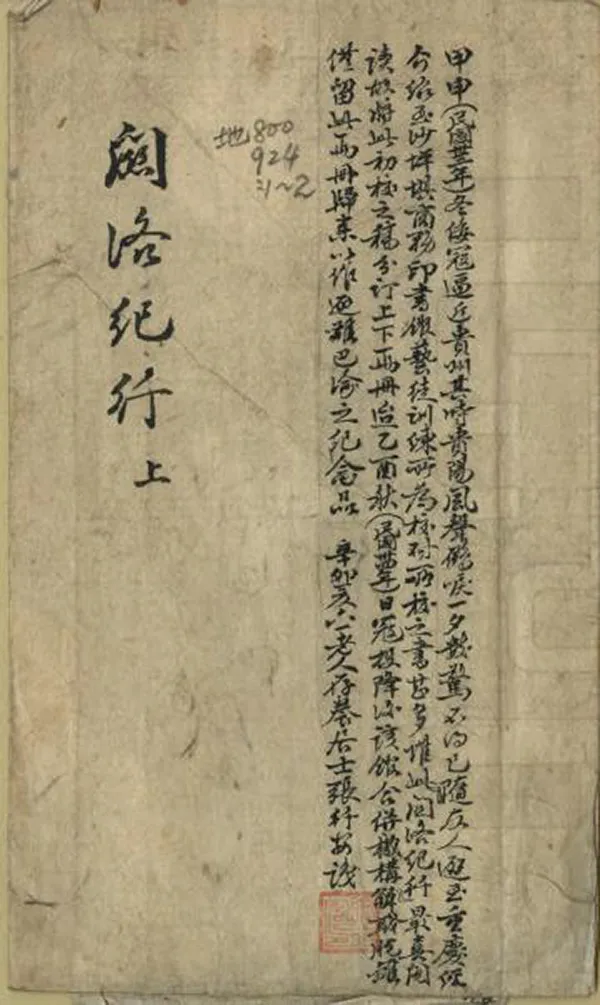 甲申(民國卅三年)冬倭寇逼近貴州其時貴陽風聲鶴唳一夕數驚不得已隨友人避至重慶經
介紹至沙坪壩商務印書館藝徒訓練所為校對所校之書甚多惟此關洛紀行最真閱
讀故將此初校之稿分訂上下兩冊迨乙酉秋(民國卅四年)日寇投降後該館合併機構解散脫離
僅留此兩冊歸來以作避難巴渝之紀念品 辛卯夏六一老人存養居士張行安識
地800
924
:1~2
關洛紀行 上